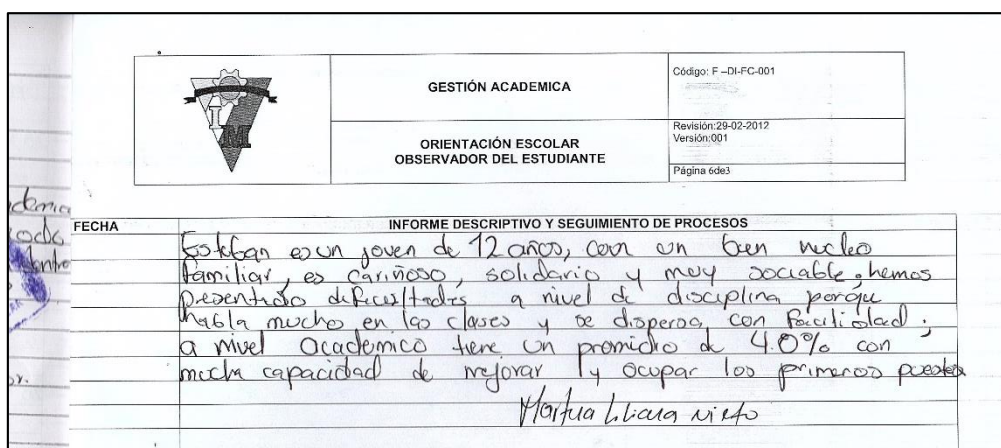 GESTIÓN ACADEMICA
Código: F –DI-FC-001
ORIENTACIÓN ESCOLAR
OBSERVADOR DEL ESTUDIANTE
Revisión:29-02-2012
Versión:001
Página 6de3
I M
FECHA
INFORME DESCRIPTIVO Y SEGUIMIENTO DE PROCESOS
Esteban es un joven de 12 años, con un buen nucleo
familiar, es cariñoso, solidario y muy sociable, hemos
presentado dificultades a nivel de disciplina porque
habla mucho en las clases y se dispersa con facilidad;
a nivel academico tiene un promidio de 4.0% con
mucha capacidad de mejorar y ocupar los primeros puestos
Liliana Nieto